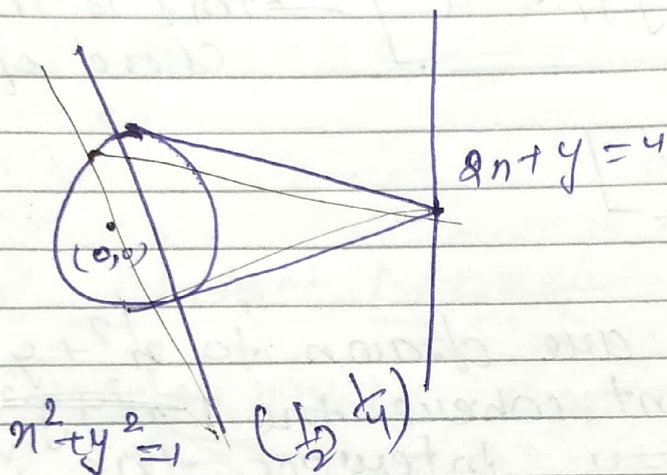 2x+y=4
(0,0)
x²+y²=1
(1/2, 1/4)